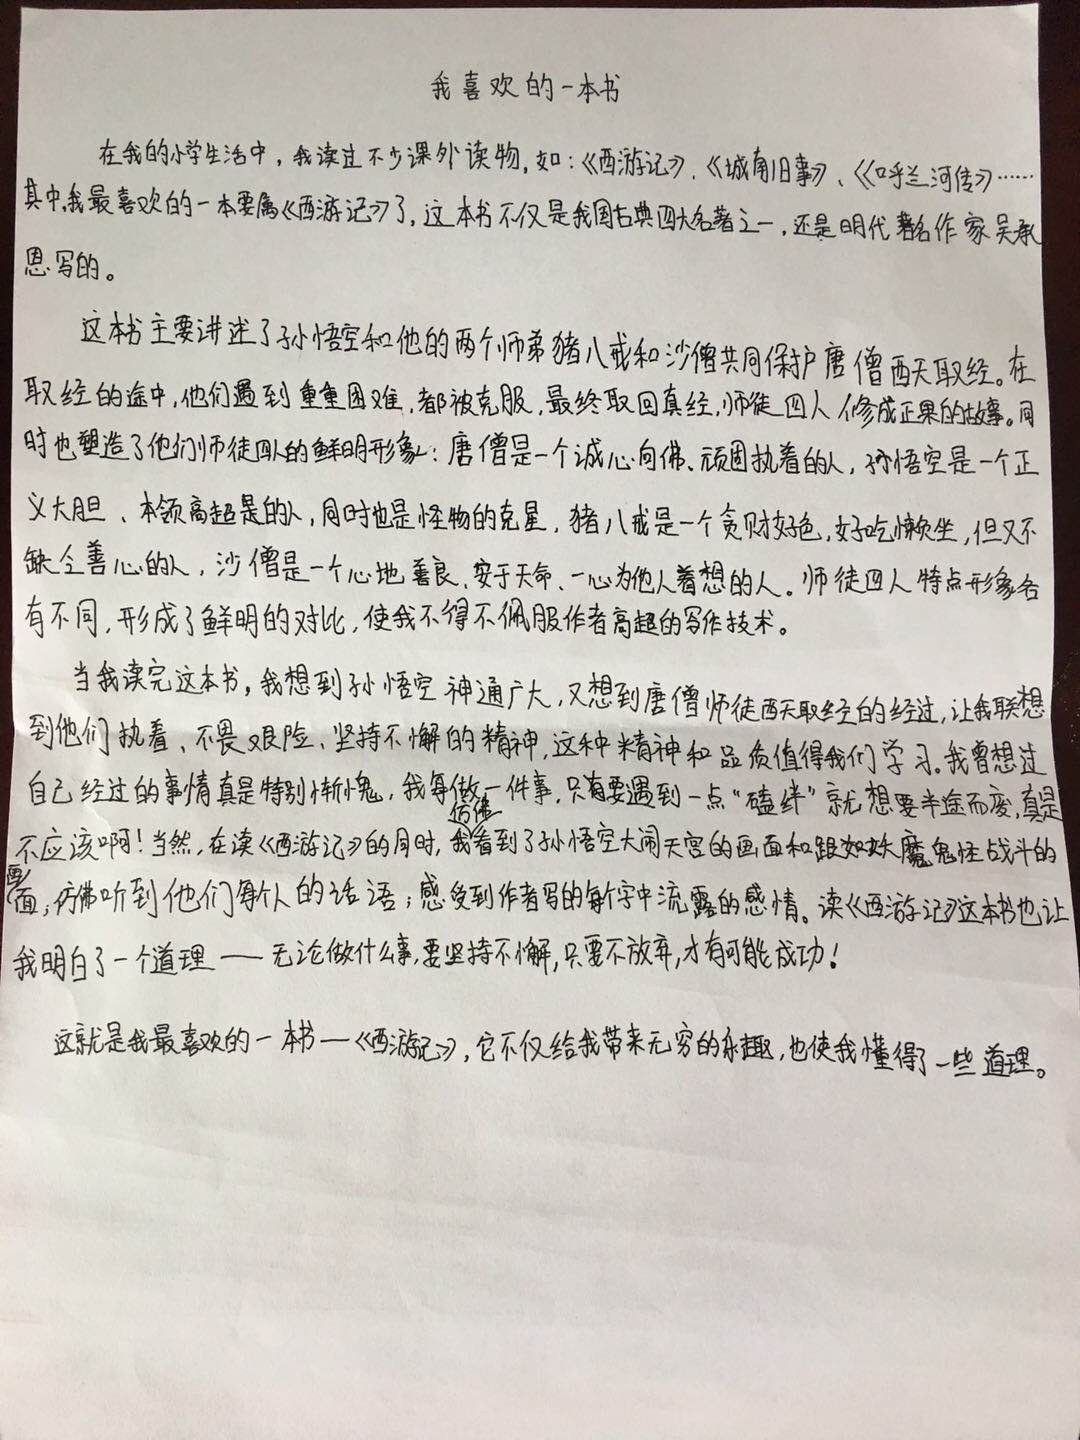 我喜欢的一本书
在我的小学生活中，我读过不少课外读物，如：《西游记》、《城南旧事》、《呼兰河传》……
其中，我最喜欢的一本要属《西游记》了，这本书不仅是我国古典四大名著之一，还是明代著名作家吴承
恩写的。
这本书主要讲述了孙悟空和他的两个师弟猪八戒和沙僧共同保护唐僧西天取经。在
取经的途中，他们遇到重重困难，都被克服，最终取回真经，师徒四人修成正果的故事。同
时也塑造了他们师徒四人的鲜明形象：唐僧是一个诚心向佛、顽固执着的人，孙悟空是一个正
义大胆、本领高超是的人，同时也是怪物的克星，猪八戒是一个贪财好色，好吃懒坐，但又不
缺仝善心的人，沙僧是一个心地善良、安于天命、一心为他人着想的人。师徒四人特点形象各
有不同，形成了鲜明的对比，使我不得不佩服作者高超的写作技术。
当我读完这本书，我想到孙悟空神通广大，又想到唐僧师徒西天取经的经过，让我联想
到他们执着、不畏艰险、坚持不懈的精神，这种精神和品质值得我们学习。我曾想过
自己经过的事情真是特别惭愧，我每做一件事，只有要遇到一点“磕绊”就想要半途而废，真是
不应该啊！当然，在读《西游记》的同时，我仿佛看到了孙悟空大闹天宫的画面和跟如妖魔鬼怪战斗的
画面；仿佛听到他们每个人的话语；感受到作者写的每个字中流露的感情。读《西游记》这本书也让
我明白了一个道理——无论做什么事，要坚持不懈，只要不放弃，才有可能成功！
这就是我最喜欢的一本书—《西游记》，它不仅给我带来无穷的乐趣，也使我懂得了一些道理。